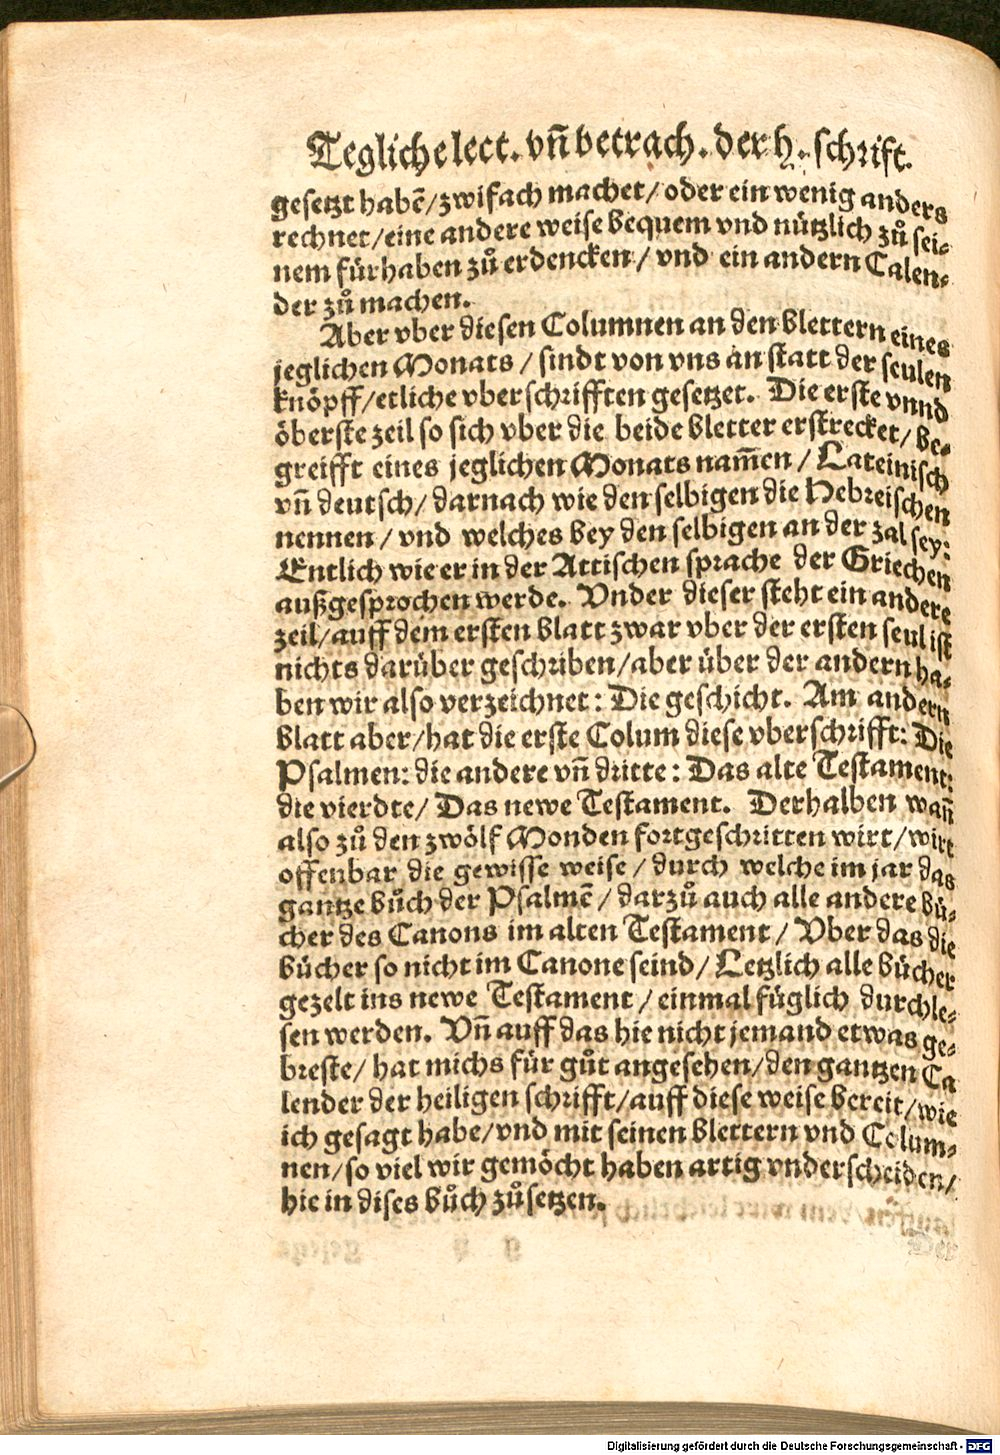 Tegliche lect. vñ betrach. der h. schrift.
gesetzt habẽ/ zwifach machet/ oder ein wenig anders
rechnet/ eine andere weise bequem vnd nützlich zů sei⸗
nem fürhaben zů erdencken/ vnd ein andern Calen⸗
der zů machen.
Aber vber diesen Columnen an den blettern eines
jeglichen Monats/ sindt von vns an statt der seulen
knöpff/ etliche vberschrifften gesetzet. Die erste vnnd
öberste zeil so sich vber die beide bletter erstrecket/ be⸗
greifft eines jeglichen Monats nam̃en/ Lateinisch
vñ deutsch/ darnach wie den selbigen die Hebreischen
nennen/ vnd welches bey den selbigen an der zal sey:
Entlich wie er in der Attischen sprache der Griechen
außgesprochen werde. Vnder dieser steht ein andere
zeil/ auff dem ersten blatt zwar vber der ersten seul ist
nichts darüber geschriben/ aber über der andern ha⸗
ben wir also verzeichnet: Die geschicht. Am andern
blatt aber/ hat die erste Colum diese vberschrifft: Die
Psalmen: die andere vñ dritte: Das alte Testament:
die vierdte/ Das newe Testament. Derhalben wañ
also zů den zwölf Monden fortgeschritten wirt/ wirt
offenbar die gewisse weise/ durch welche im jar das
gantze bůch der Psalmẽ/ darzů auch alle andere bü⸗
cher des Canons im alten Testament/ Vber das die
bücher so nicht im Canone seind/ Letzlich alle bücher
gezelt ins newe Testament/ einmal füglich durchle⸗
sen werden. Vñ auff das hie nicht jemand etwas ge⸗
breste/ hat michs für gůt angesehen/ den gantzen Ca
lender der heiligen schrifft/ auff diese weise bereit/ wie
ich gesagt habe/ vnd mit seinen blettern vnd Colum⸗
nen/ so viel wir gemöcht haben artig vnderscheiden/
hie in dises bůch zůsetzen.
Der
Digitalisierung gefördert durch die Deutsche Forschungsgemeinschaft - DFG